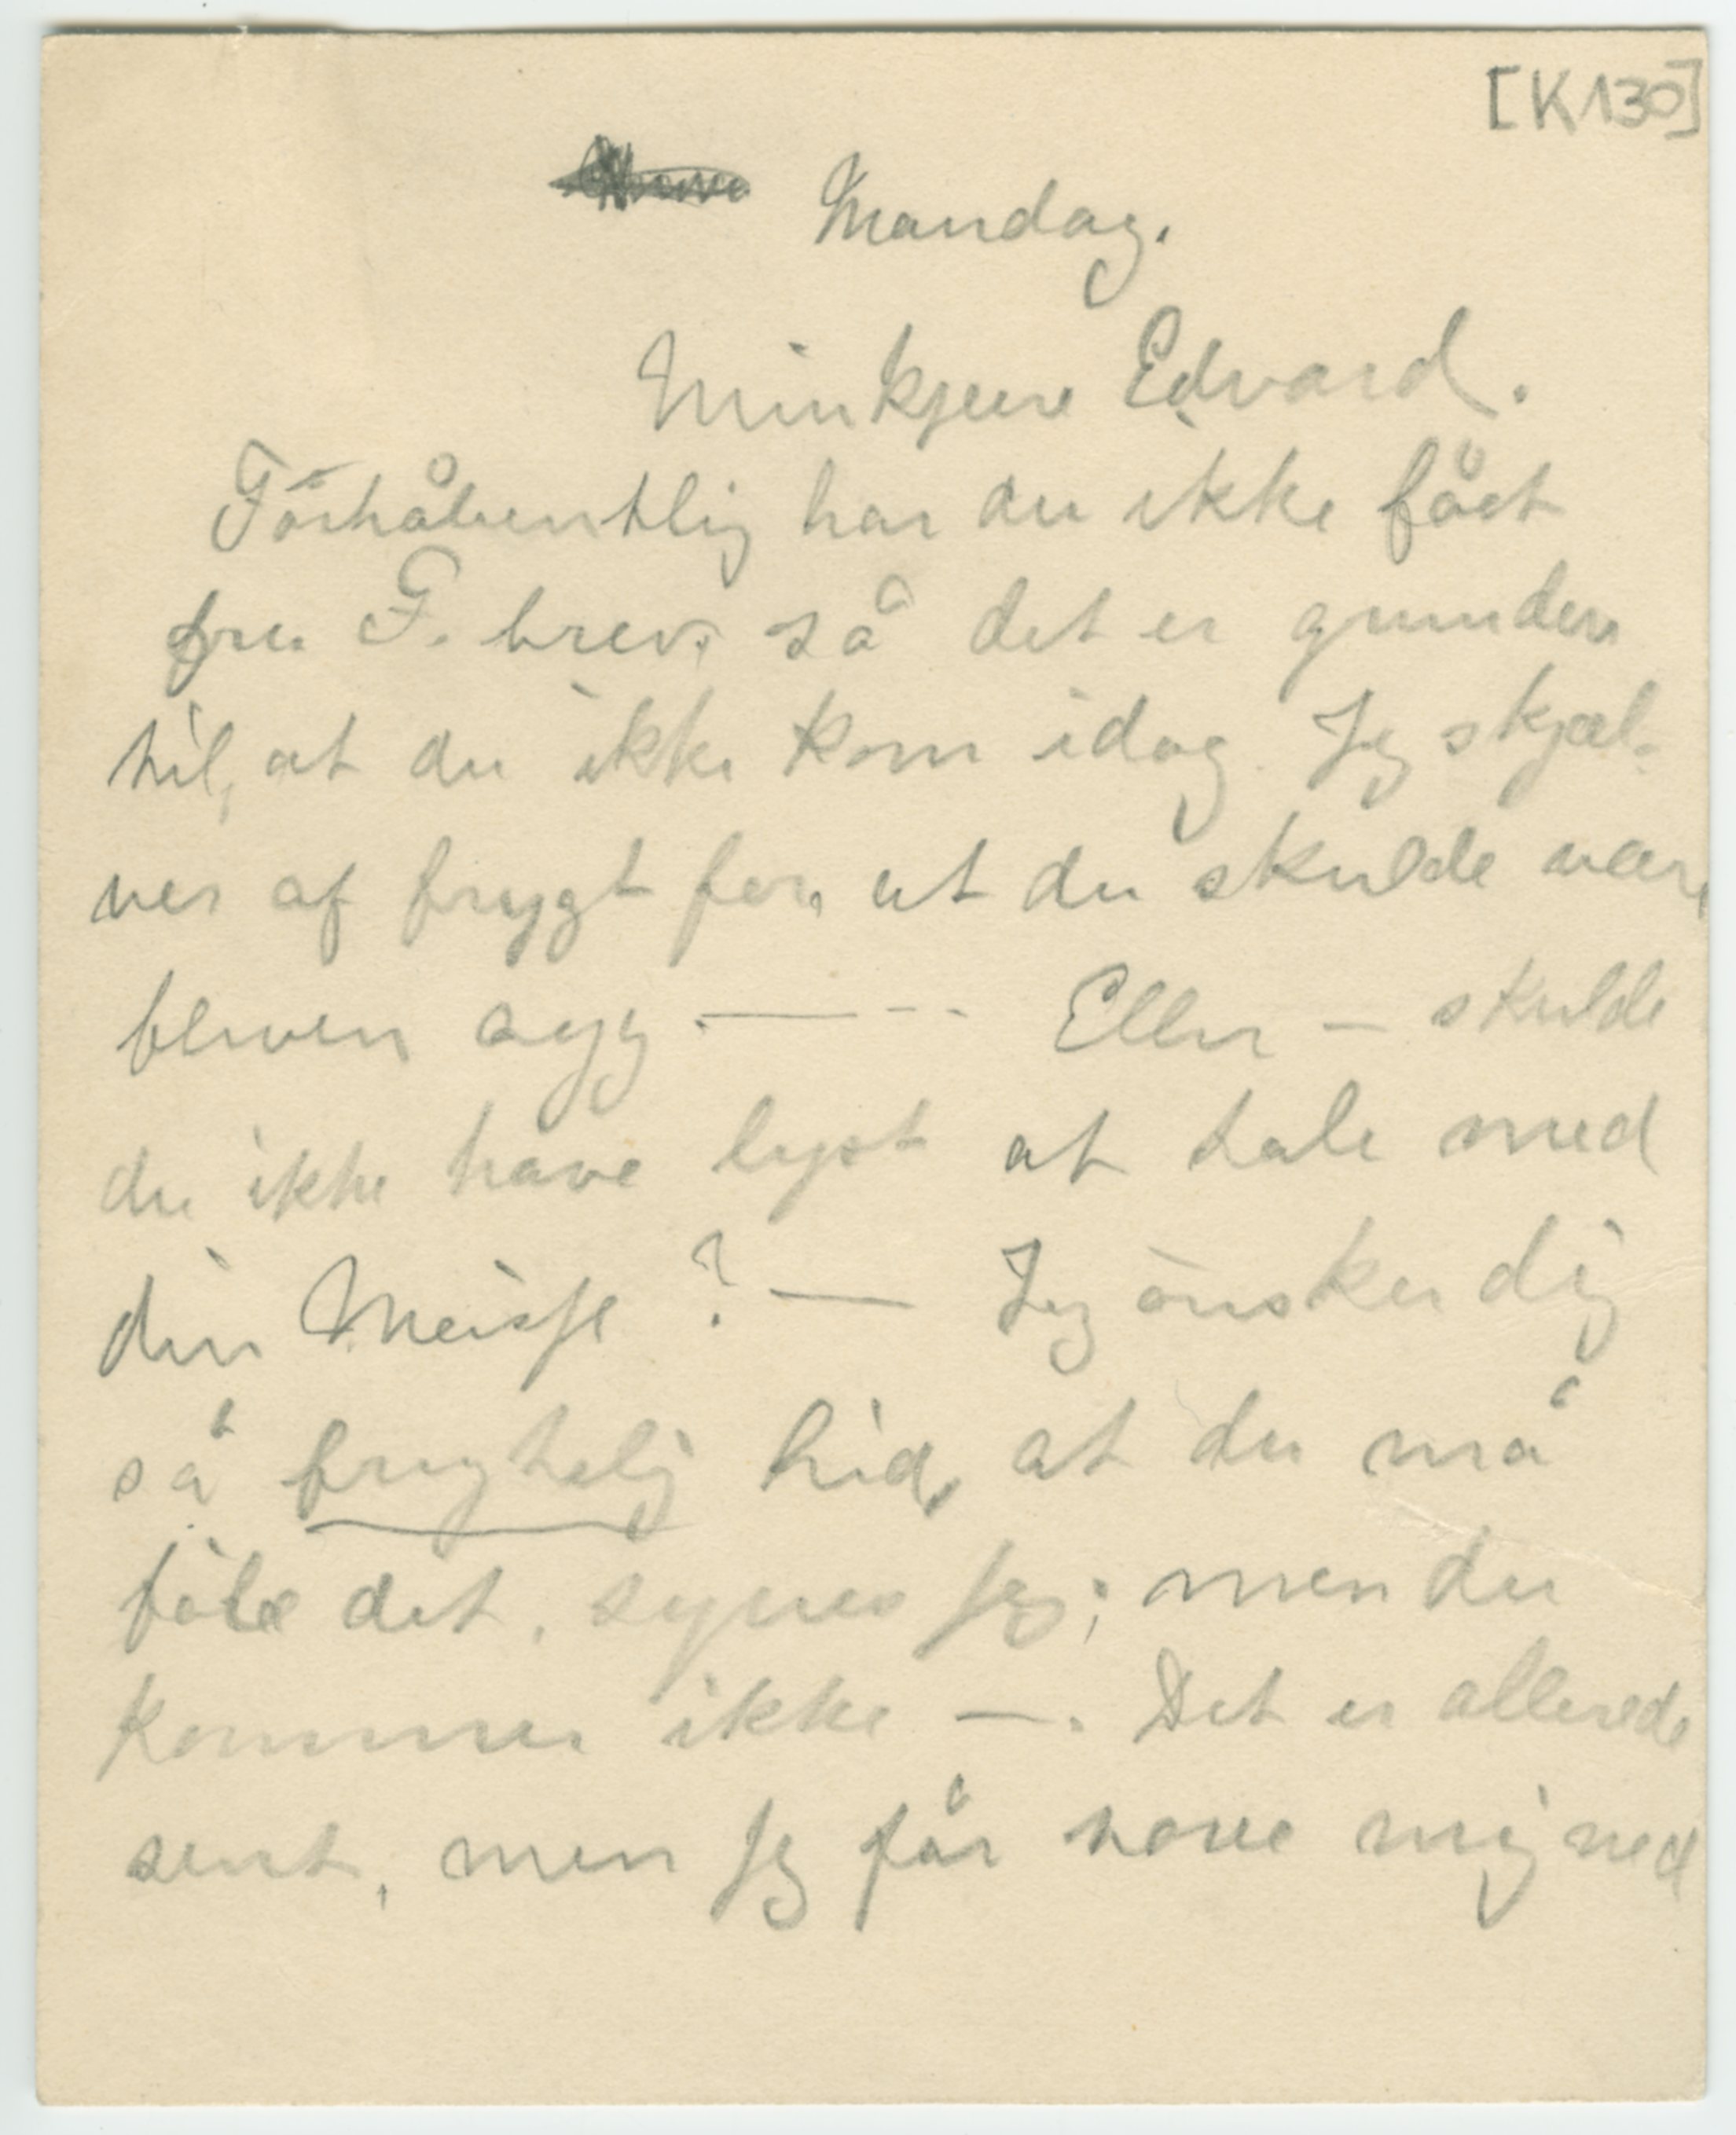 [K130]
Mandag.
Min kjere Edvard.
Förhåbentlig har du ikke fået
fru F. brev, så det er grunden
til, at du ikke kom idag. Jeg skjæl-
ver af frygt for, at du skulde være
bleven syg. — - - Eller — skulde
du ikke have lyst at tale med
din Meisse? — Jeg önsker dig
så frygtelig hid, at du må
föle det, synes jeg; men du
kommer ikke —. Det er allerede
sent, men jeg får   mig ned